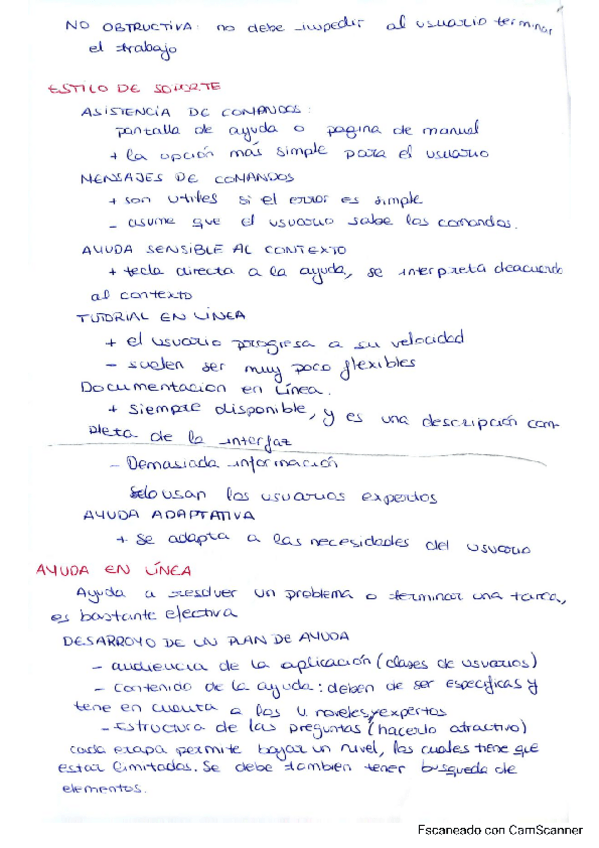 NO OBSTRUCTIVA: no debe impedir al usuario terminar
el trabajo
ESTILO DE SOPORTE
ASISTENCIA DE COMANDOS:
pantalla de ayuda o pagina de manual
+ la opción más simple para el usuario
MENSAJES DE COMANDOS
+ son utiles si el error es simple
- asume que el usuario sabe los comandos.
AYUDA SENSIBLE AL CONTEXTO
+ tecla directa a la ayuda, se interpreta deacuerdo
al contexto
TUTORIAL EN LÍNEA
+ el usuario progresa a su velocidad
- suelen ser muy poco flexibles
Documentacion en Línea.
+ siempre disponible, y es una descripción com-
pleta de la interfaz
- Demasiada información
Solo usan los usuarios expertos
AYUDA ADAPTATIVA
+ se adapta a las necesidades del usuario
AYUDA EN LÍNEA
Ayuda a resolver un problema o terminar una tarea,
es bastante efectiva
DESARROYO DE UN PLAN DE AYUDA
- audiencia de la aplicación (clases de usuarios)
- contenido de la ayuda: deben de ser especificas y
tene en cuenta a los U. noveles y expertos
- Estructura de las preguntas (hacerlo atractivo)
cada etapa permite bajar un nivel, los cuales tiene que
estar limitados. Se debe tambien tener busqueda de
elementos.
Escaneado con CamScanner